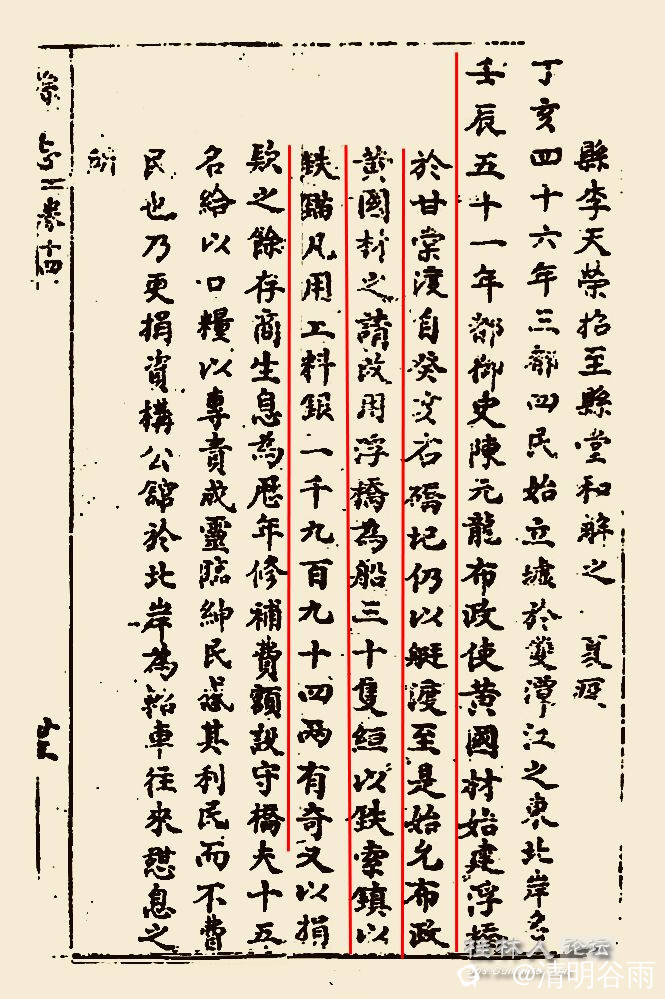 縣李天榮招至縣堂和解之
丁亥四十六年三部四民始立墟於雙潭江之東北岸名
壬辰五十一年都御史陳元龍布政使黄國材始建浮橋
於甘棠渡自癸亥石橋圮仍以艇渡至是始允布政
黄國材之請改用浮橋為船三十隻絙以鉄索鎮以
鉄錨凡用工料銀一千九百九十四两有奇又以捐
欵之餘存商生息為歷年修補費額設守橋夫十五
名給以口糧以專責成靈臨紳民咸其利民而不費
民也乃更捐資構公舘於北岸為船車往來憇息之
所
卷十四
桂林人论坛
@清明谷雨